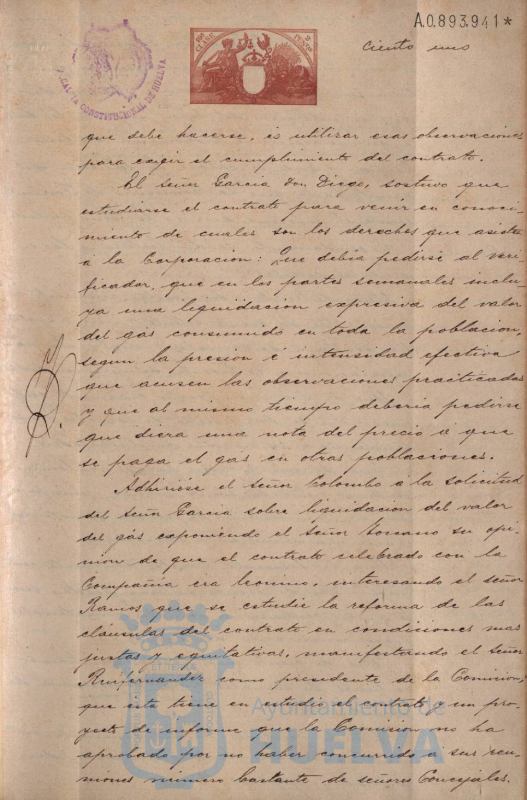 A.0.893.941*
Ciento uno
ALCALDIA CONSTITUCIONAL DE HUELVA
que debe hacerse, es utilizar esas observaciones
para exigir el cumplimiento del contrato.
El Señor Garcia Don Diego, sostuvo que
estudiarse el contrato para venir en conoci-
miento de cuales son los derechos que asisten
á la Corporacion: Que debia pedirse al veri-
ficador, que en los partes semanales inclu-
ya una liquidacion expresiva del valor
del gás consumido en toda la poblacion,
segun la presion é intensidad efectiva
que acusen las observaciones practicadas
y que al mismo tiempo deberia pedirse
que diera una nota del precio á que
se paga el gás en otras poblaciones.
Adhirióse el Señor Colombo á la solicitud
del Señor Garcia sobre liquidacion del valor
del gás exponiendo el Señor su opi-
nion de que el contrato celebrado con la
Compañia era leonino, interesando el señor
Ramos que se estudie la reforma de las
cláusulas del contrato en condiciones mas
justas y equitativas, manifestando el Señor
Ruifernandez como presidente de la Comision,
que esta tiene en estudio el contrato, y un pro-
yecto de informe que la Comision no ha
aprobado por no haber concurrido á sus reu-
niones número bastante de señores Concejales.
Ayuntamiento de
HUELVA